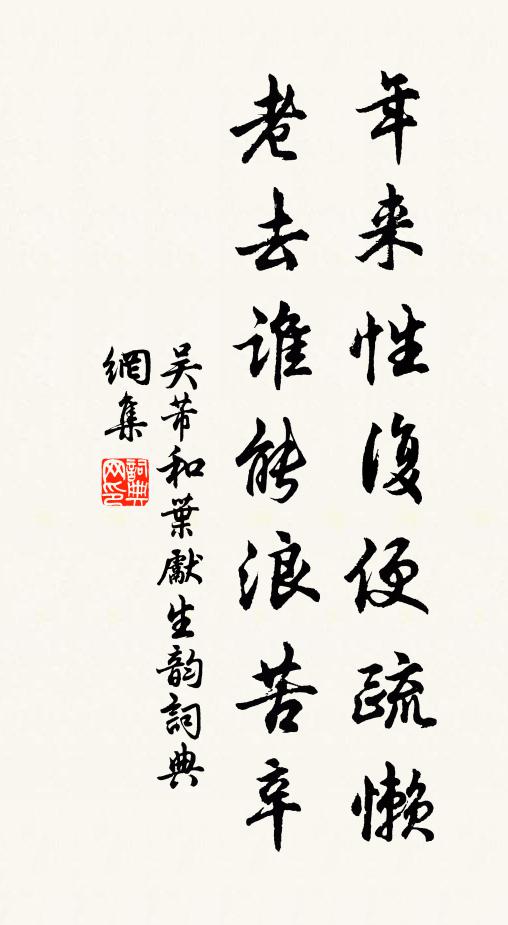 年来性復便疏懒
老去誰能浪苦辛
吴芾和葉獻生韵詞典
網集
詞典
网印